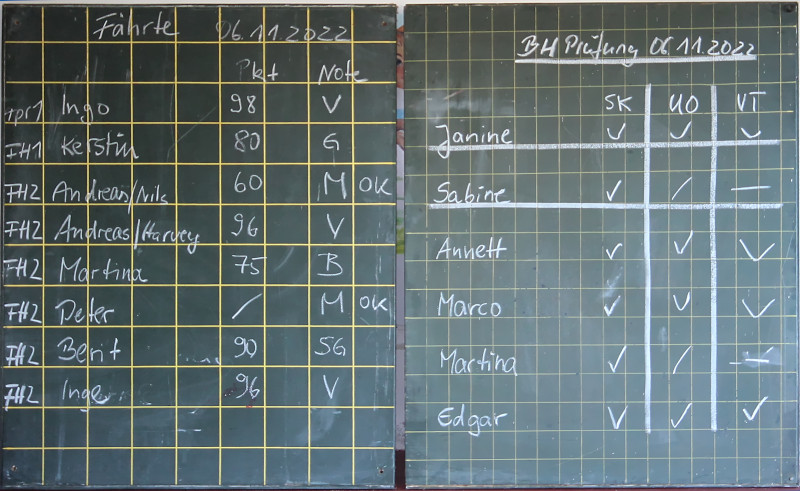 Fährte 06.11.2022
Pkt Note
IPr1 Ingo 98 V
FH1 Kerstin 80 G
FH2 Andreas/Nils 60 M OK
FH2 Andreas/Harvey 96 V
FH2 Martina 75 B
FH2 Peter / M OK
FH2 Berit 90 SG
FH2 Inge 96 V
BH Prüfung 06.11.2022
SK UO VT
Janine ✓ ✓ ✓
Sabine ✓ / —
Annett ✓ ✓ ✓
Marco ✓ ✓ ✓
Martina ✓ / —
Edgar ✓ ✓ ✓